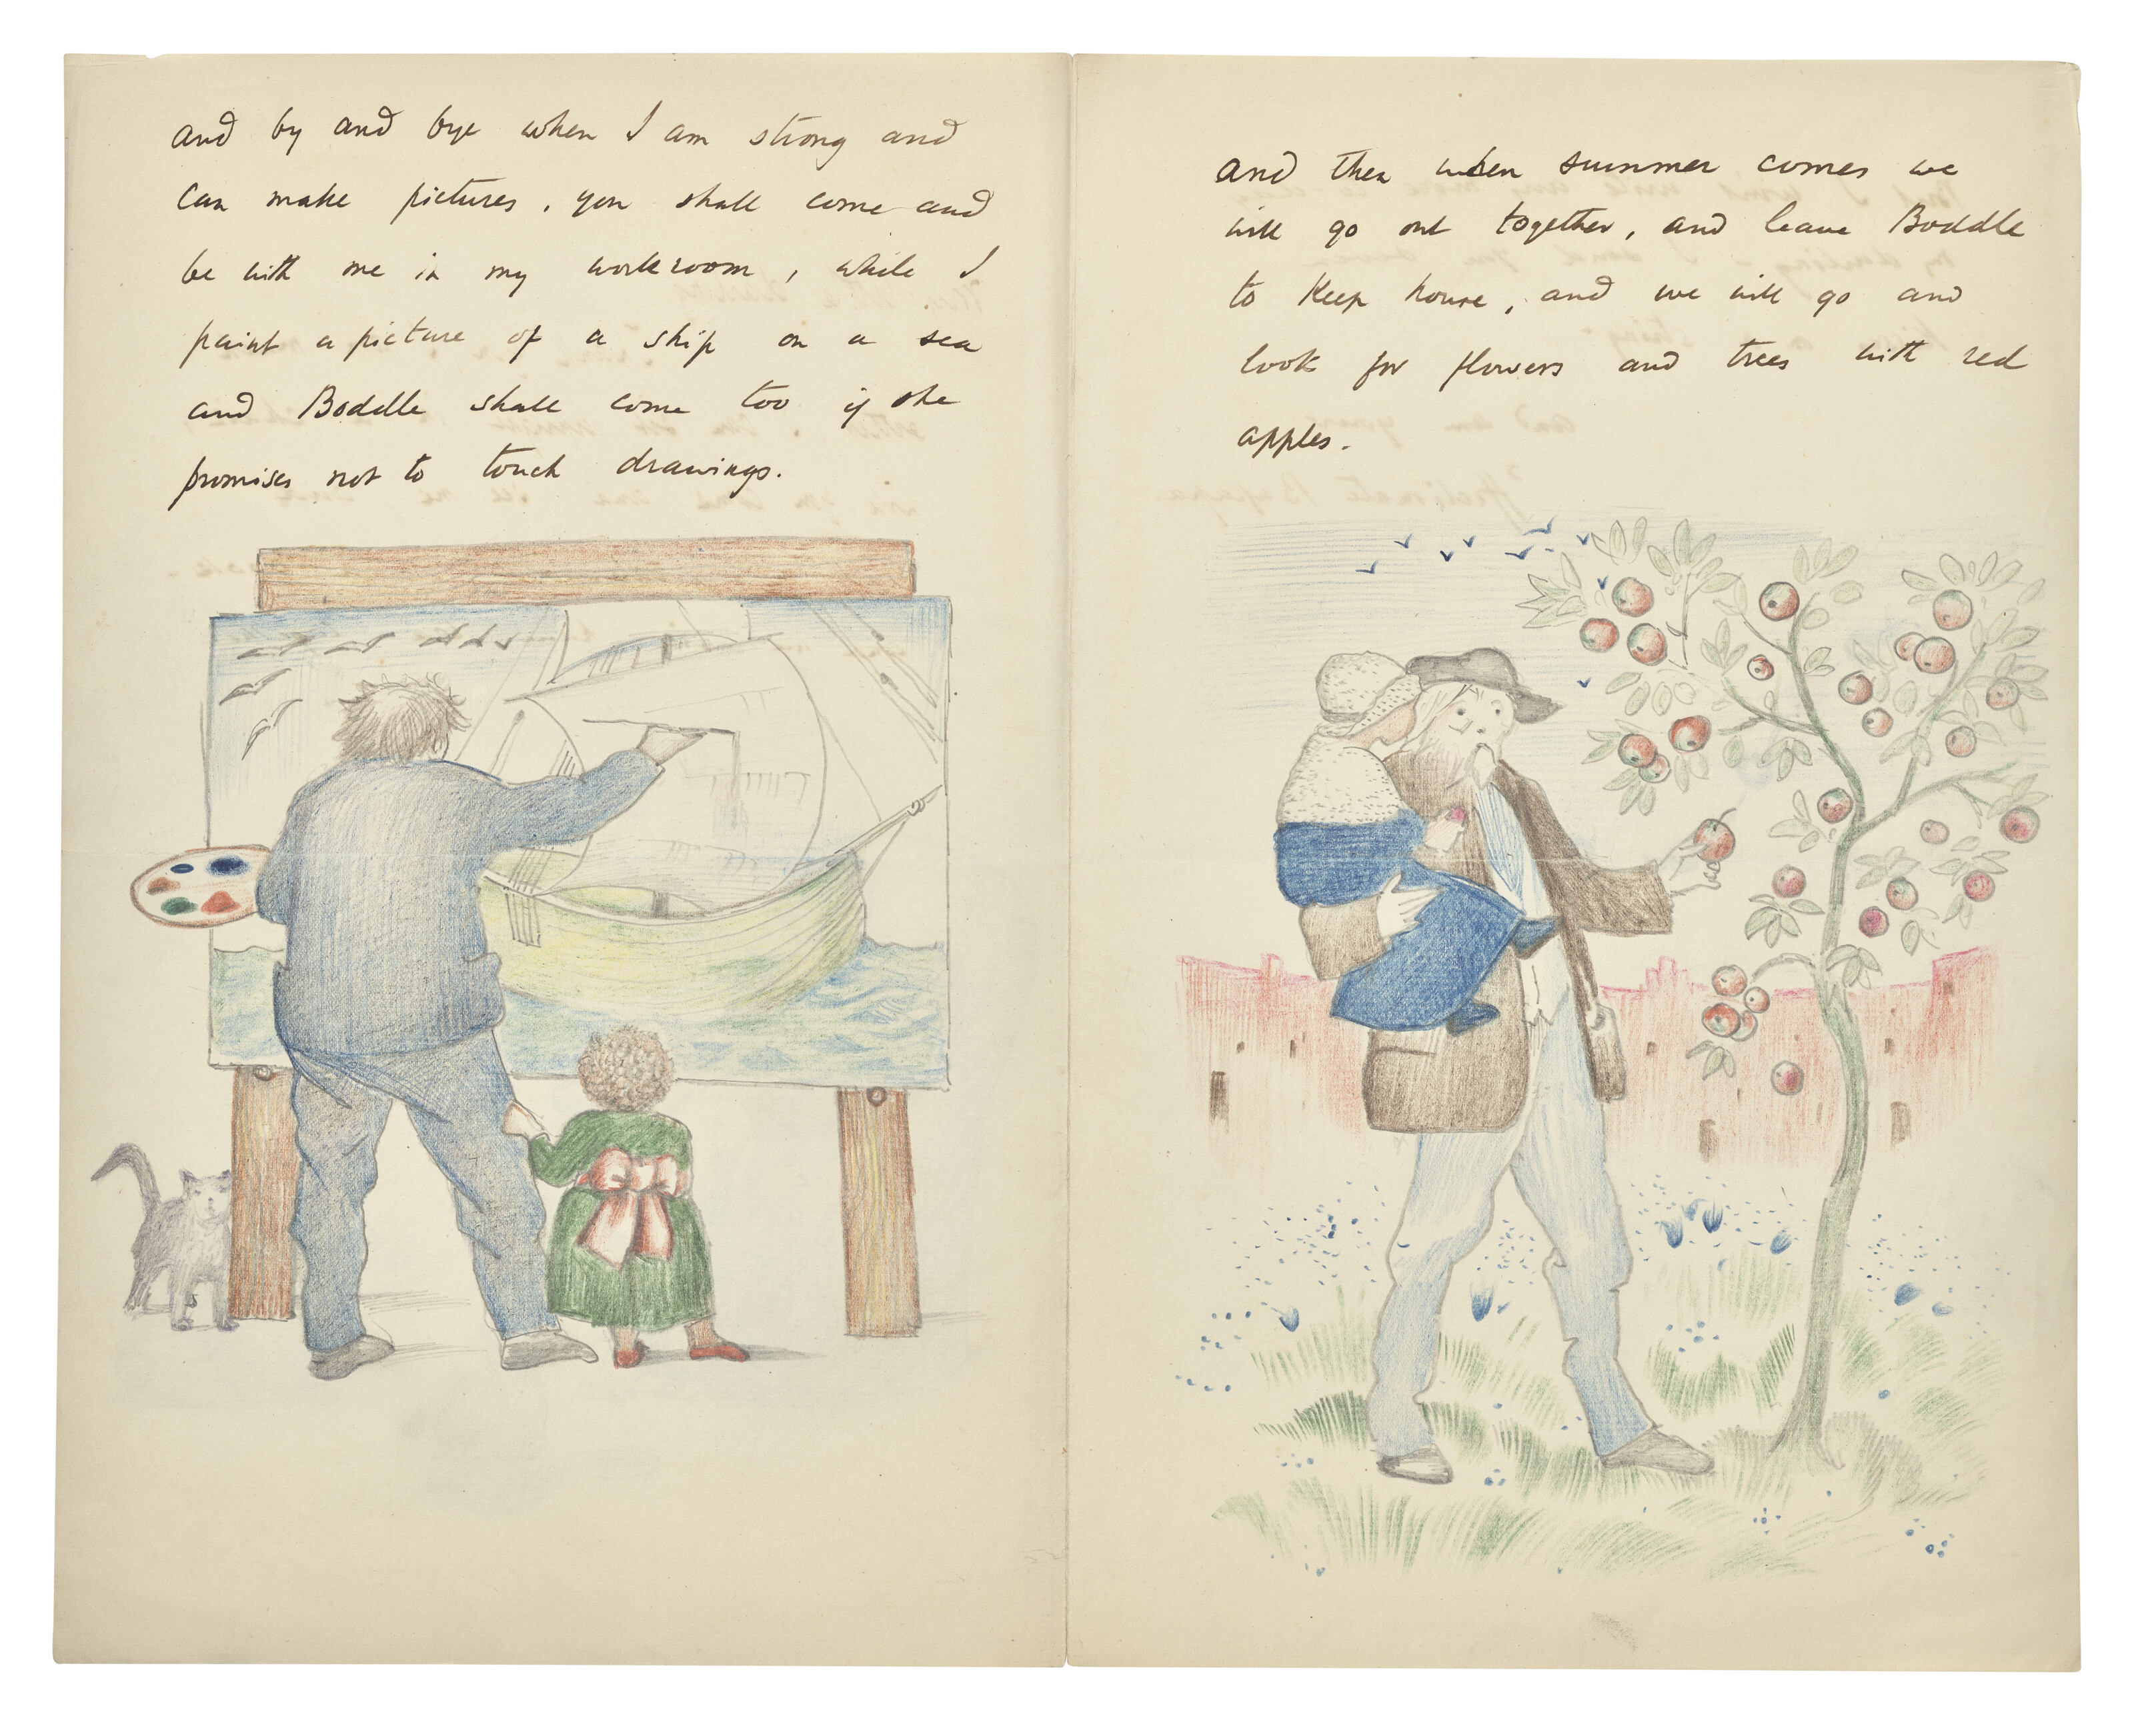 and by and bye when I am strong and
can make pictures, you shall come and
be with me in my workroom, while I
paint a picture of a ship on a sea
and Boddle shall come too if she
promises not to touch drawings.
and then when summer comes we
will go out together, and leave Boddle
to keep house, and we will go and
look for flowers and trees with red
apples.